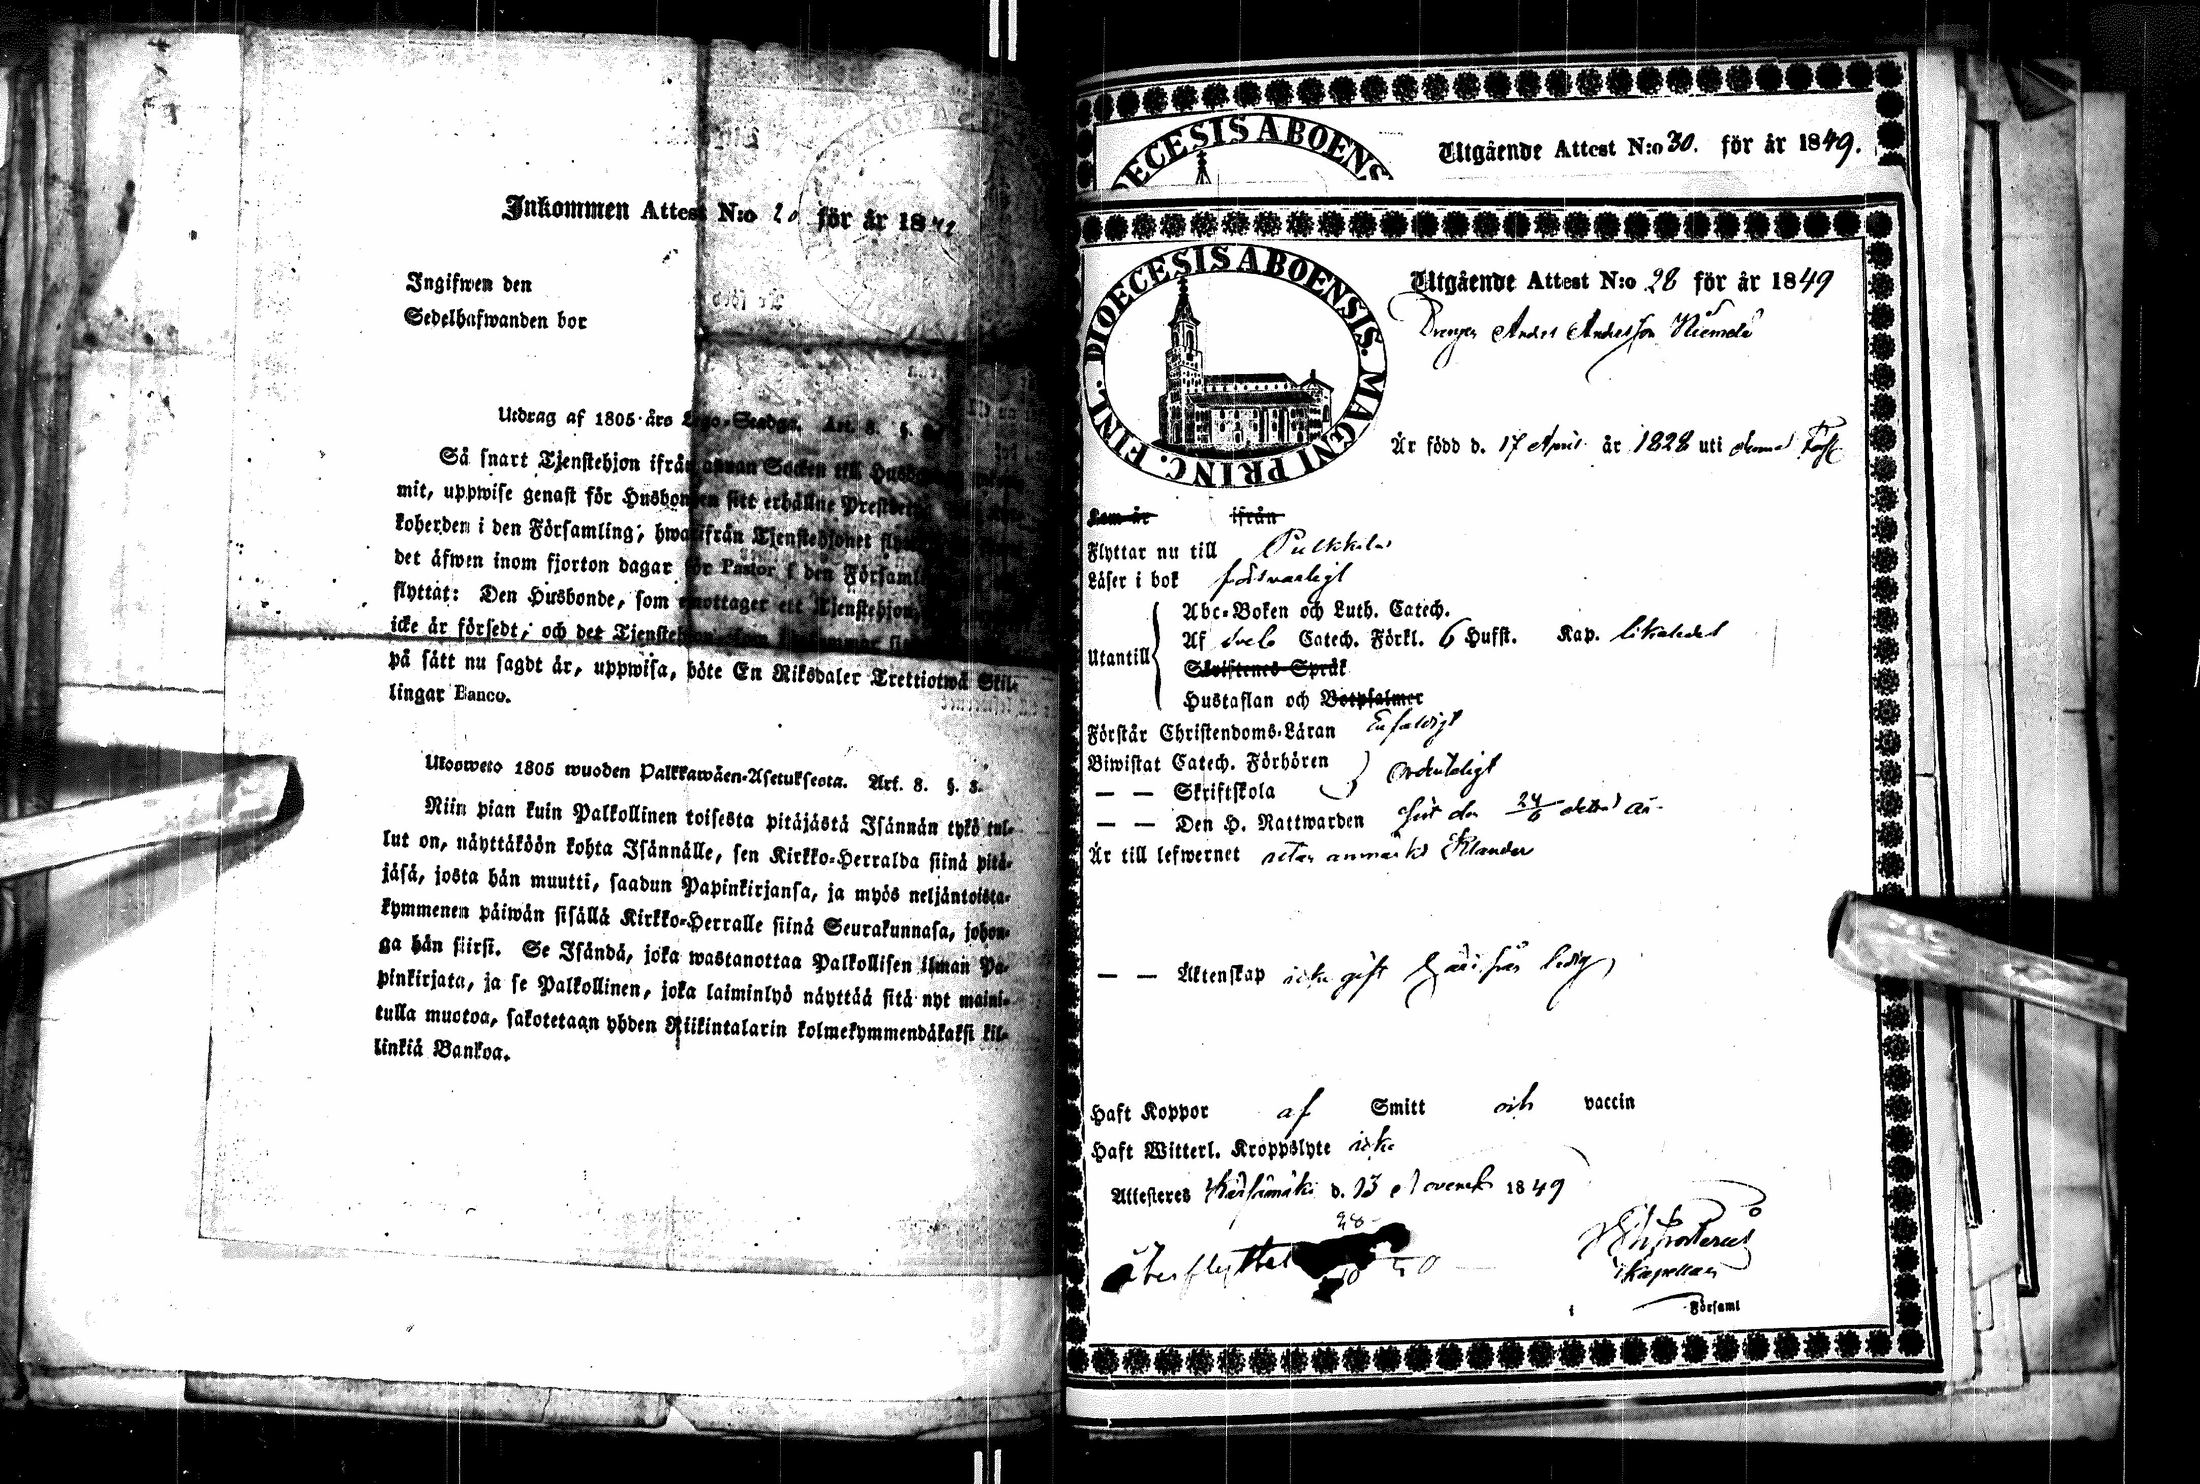 Inkommen Attest N:o 20 för år 18
Ingifwen den
Sedelhafwanden bor
Utdrag af 1805 års Lego-Stadga. Art. 8. §.
Så snart Tjenstehjon ifrån annan Socken till
mit, uppwise genast för Husbonden sitt erhållne
koherden i den Församling, hwarifrån Tjenstehjonet
det äfwen inom fjorton dagar för Pastor i den
flyttat: Den Husbonde, som emottager ett Tjenstehjon,
icke är försedt, och det Tjenstehjon, som
på sått nu sagdt är, uppwisa, böte En Riksdaler Trettiotwå Skil-
lingar Banco.
Ulosweto 1805 wuoden Palkkawäen-Asetuksesta. Art. 8. §. 3.
Niin pian kuin Palkollinen toisesta pitäjästä Isännän tykö tul-
lut on, näyttäköön kohta Isännälle, sen Kirkko-Herralda siinä pitä-
jäsä, josta hän muutti, saadun Papinkirjansa, ja myös neljäntoista-
kymmenen päiwän sisällä Kirkko-Herralle siinä Seurakunnasa, johon-
ga hän siirsi. Se Isändä, joka wastanottaa Palkollisen ilman Pa-
pinkirjata, ja se Palkollinen, joka laiminlyö näyttää sitä nyt maini-
tulla muotoa, sakotetaan yhden Riikintalarin kolmekymmendäkaksi kil-
linkiä Bankoa.
DIOECESIS ABOENS
Utgående Attest N:o 30. för år 1849.
DIOECESIS ABOENSIS. MAGNI PRINC. FINL.
Utgående Attest N:o 28 för år 1849
Drengen Anders Andersson Niemelä
Är född d. 17 April år 1828 uti denna
Kom år ifrån
Flyttar nu till Pulkkila
Läser i bok försvarligt
Utantill
Abc-Boken och Luth. Catech.
Af Catech. Förkl. 6 Hufst. Kap.
Skriftenes Språk
Hustaflan och Botpsalmer
Förstår Christendoms-Läran Enfaldigt
Biwistat Catech. Förhören
— — Skriftskola ordenteligt
— — Den H. Nattwarden den 24/6 detta år
Är till lefwernet utan anmärkt klander
— — Äktenskap icke gift härifrån ledig
Haft Koppor af Smitt och vaccin
Haft Witterl. Kroppslyte icke
Attesteres Kärsämäki d. 13 Novemb 1849
28
Återflyttat 10 50
Kapellan
i Församl